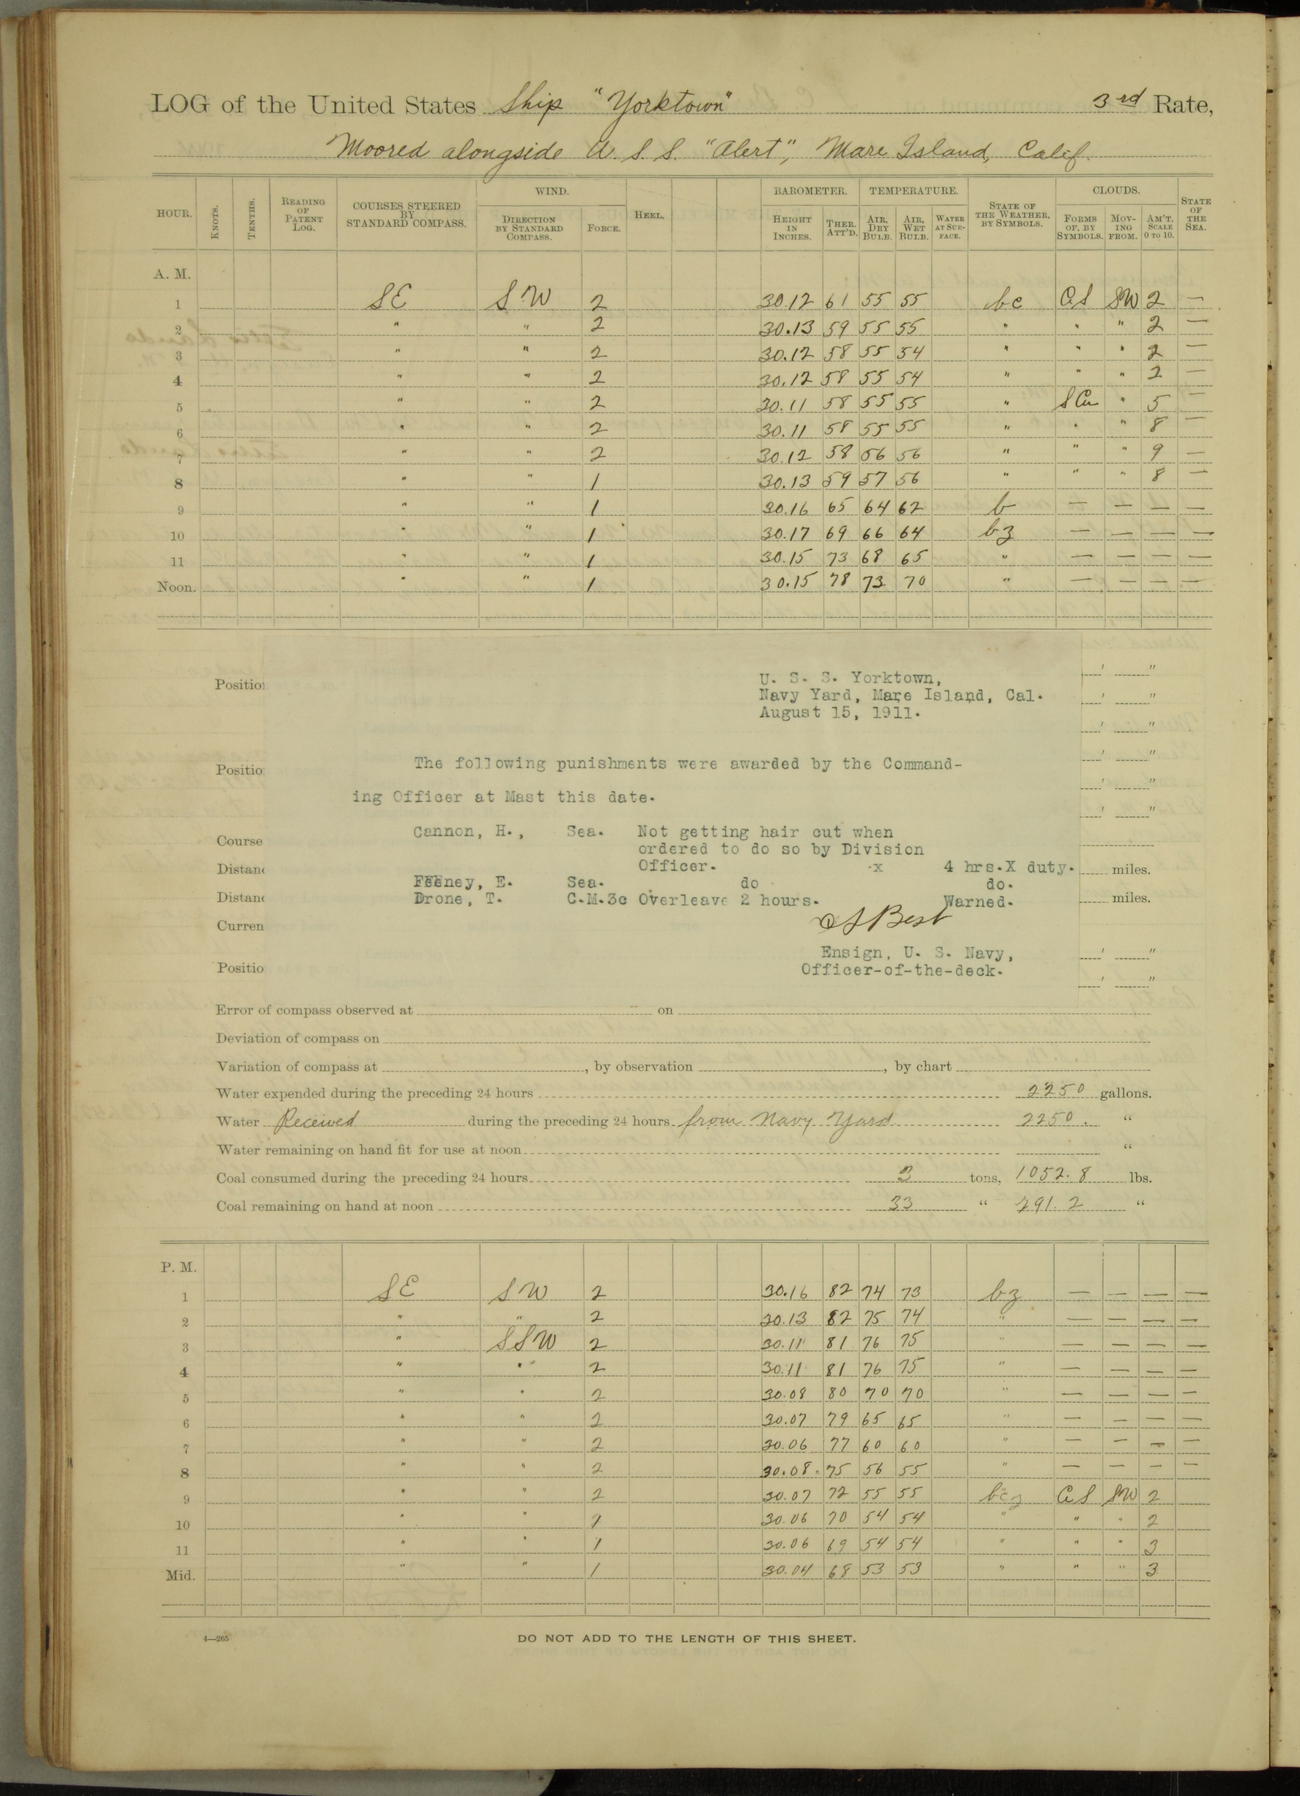 LOG of the United States Ship "Yorktown" 3rd Rate,
Moored alongside U. S. S. "Alert", Mare Island, Calif.
HOUR. KNOTS. TENTHS. READING OF PATENT LOG. COURSES STEERED BY STANDARD COMPASS. WIND. DIRECTION BY STANDARD COMPASS. FORCE. HEEL. BAROMETER. HEIGHT IN INCHES. THER. ATT'D. TEMPERATURE. AIR, DRY BULB. AIR, WET BULB. WATER AT SURFACE. STATE OF THE WEATHER, BY SYMBOLS. CLOUDS. FORMS OF, BY SYMBOLS. MOVING FROM. AM'T. SCALE 0 TO 10. STATE OF THE SEA.
A. M.
1 SE SW 2 30.12 61 55 55 bc CS SW 2 —
2 " " 2 30.13 59 55 55 " " " 2 —
3 " " 2 30.12 58 55 54 " " " 2 —
4 " " 2 30.12 58 55 54 " " " 2 —
5 " " 2 30.11 58 55 55 " SCu " 5 —
6 " " 2 30.11 58 55 55 " " " 8 —
7 " " 2 30.12 58 56 56 " " " 9 —
8 " " 1 30.13 59 57 56 " " " 8 —
9 " " 1 30.16 65 64 62 b — — — —
10 " " 1 30.17 69 66 64 bz — — — —
11 " " 1 30.15 73 68 65 " — — — —
Noon. " " 1 30.15 78 73 70 " — — — —
U. S. S. Yorktown,
Navy Yard, Mare Island, Cal.
August 15, 1911.
The following punishments were awarded by the Command-
ing Officer at Mast this date.
Cannon, H., Sea. Not getting hair cut when
ordered to do so by Division
Officer. x 4 hrs.X duty.
Feeney, E. Sea. do do.
Drone, T. C.M.3c Overleave 2 hours. Warned.
Best
Ensign, U. S. Navy,
Officer-of-the-deck.
Positio
Positio
Course
Distanc miles.
Distanc miles.
Curren
Positio
Error of compass observed at on
Deviation of compass on
Variation of compass at , by observation , by chart
Water expended during the preceding 24 hours 2250 gallons.
Water Received during the preceding 24 hours from Navy Yard 2250. "
Water remaining on hand fit for use at noon "
Coal consumed during the preceding 24 hours 2 tons, 1052.8 lbs.
Coal remaining on hand at noon 33 " 291.2 "
P. M.
1 SE SW 2 30.16 82 74 73 bz — — — —
2 " " 2 30.13 82 75 74 " — — — —
3 " SSW 2 30.11 81 76 75 " — — — —
4 " " 2 30.11 81 76 75 " — — — —
5 " " 2 30.08 80 70 70 " — — — —
6 " " 2 30.07 79 65 65 " — — — —
7 " " 2 30.06 77 60 60 " — — — —
8 " " 2 30.08 75 56 55 " — — — —
9 " " 2 30.07 72 55 55 bcz CS SW 2
10 " " 1 30.06 70 54 54 " " " 2
11 " " 1 30.06 69 54 54 " " " 3
Mid. " " 1 30.04 68 53 53 " " " 3
4—265
DO NOT ADD TO THE LENGTH OF THIS SHEET.